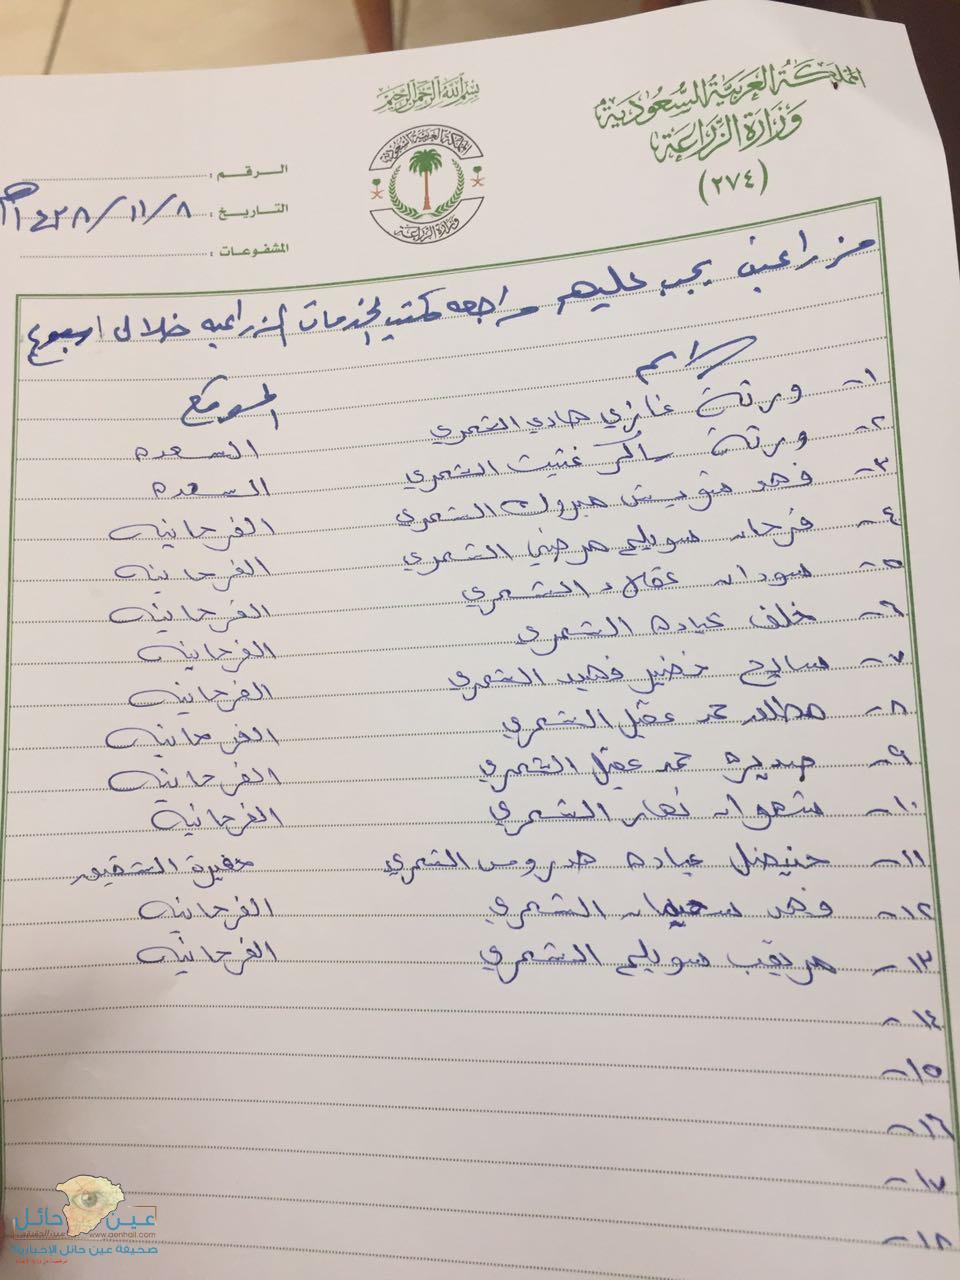 بسم الله الرحمن الرحيم
المملكة العربية السعودية
وزارة الزراعة
(٢٧٤)
المملكة العربية السعودية
وزارة الزراعة
الرقم :
التاريخ : ٨/ ١١/ ١٤٣٨ هـ
المشفوعات :
مزارعين يجب عليهم مراجعه مكتب الخدمات الزراعيه خلال اسبوع
الاسم الموقع
١- ورثة غازي هادي الشمري السعده
٢- ورثة ساكر غثيث الشمري السعده
٣- فهد متويش مبروك الشمري الفرحانيه
٤- فرحان سويلم مرضي الشمري الفرحانيه
٥- سودان عقلاء الشمري الفرحانيه
٦- خلف عياده الشمري الفرحانيه
٧- خضير فهيد الشمري الفرحانيه
٨- حمد عقيل الشمري الفرحانيه
٩- حمد عقيل الشمري الفرحانيه
١٠- شهوان نهار الشمري الفرحانية
١١- عياده الشمري حفيرة الشقيق
١٢- فهد سحيمان الشمري الفرحانيه
١٣- مريقب سويلم الشمري الفرحانيه
١٤-
١٥-
١٦-
١٧-
١٨-
عين حائل
www.aenhail.com
صحيفة عين حائل الإخبارية